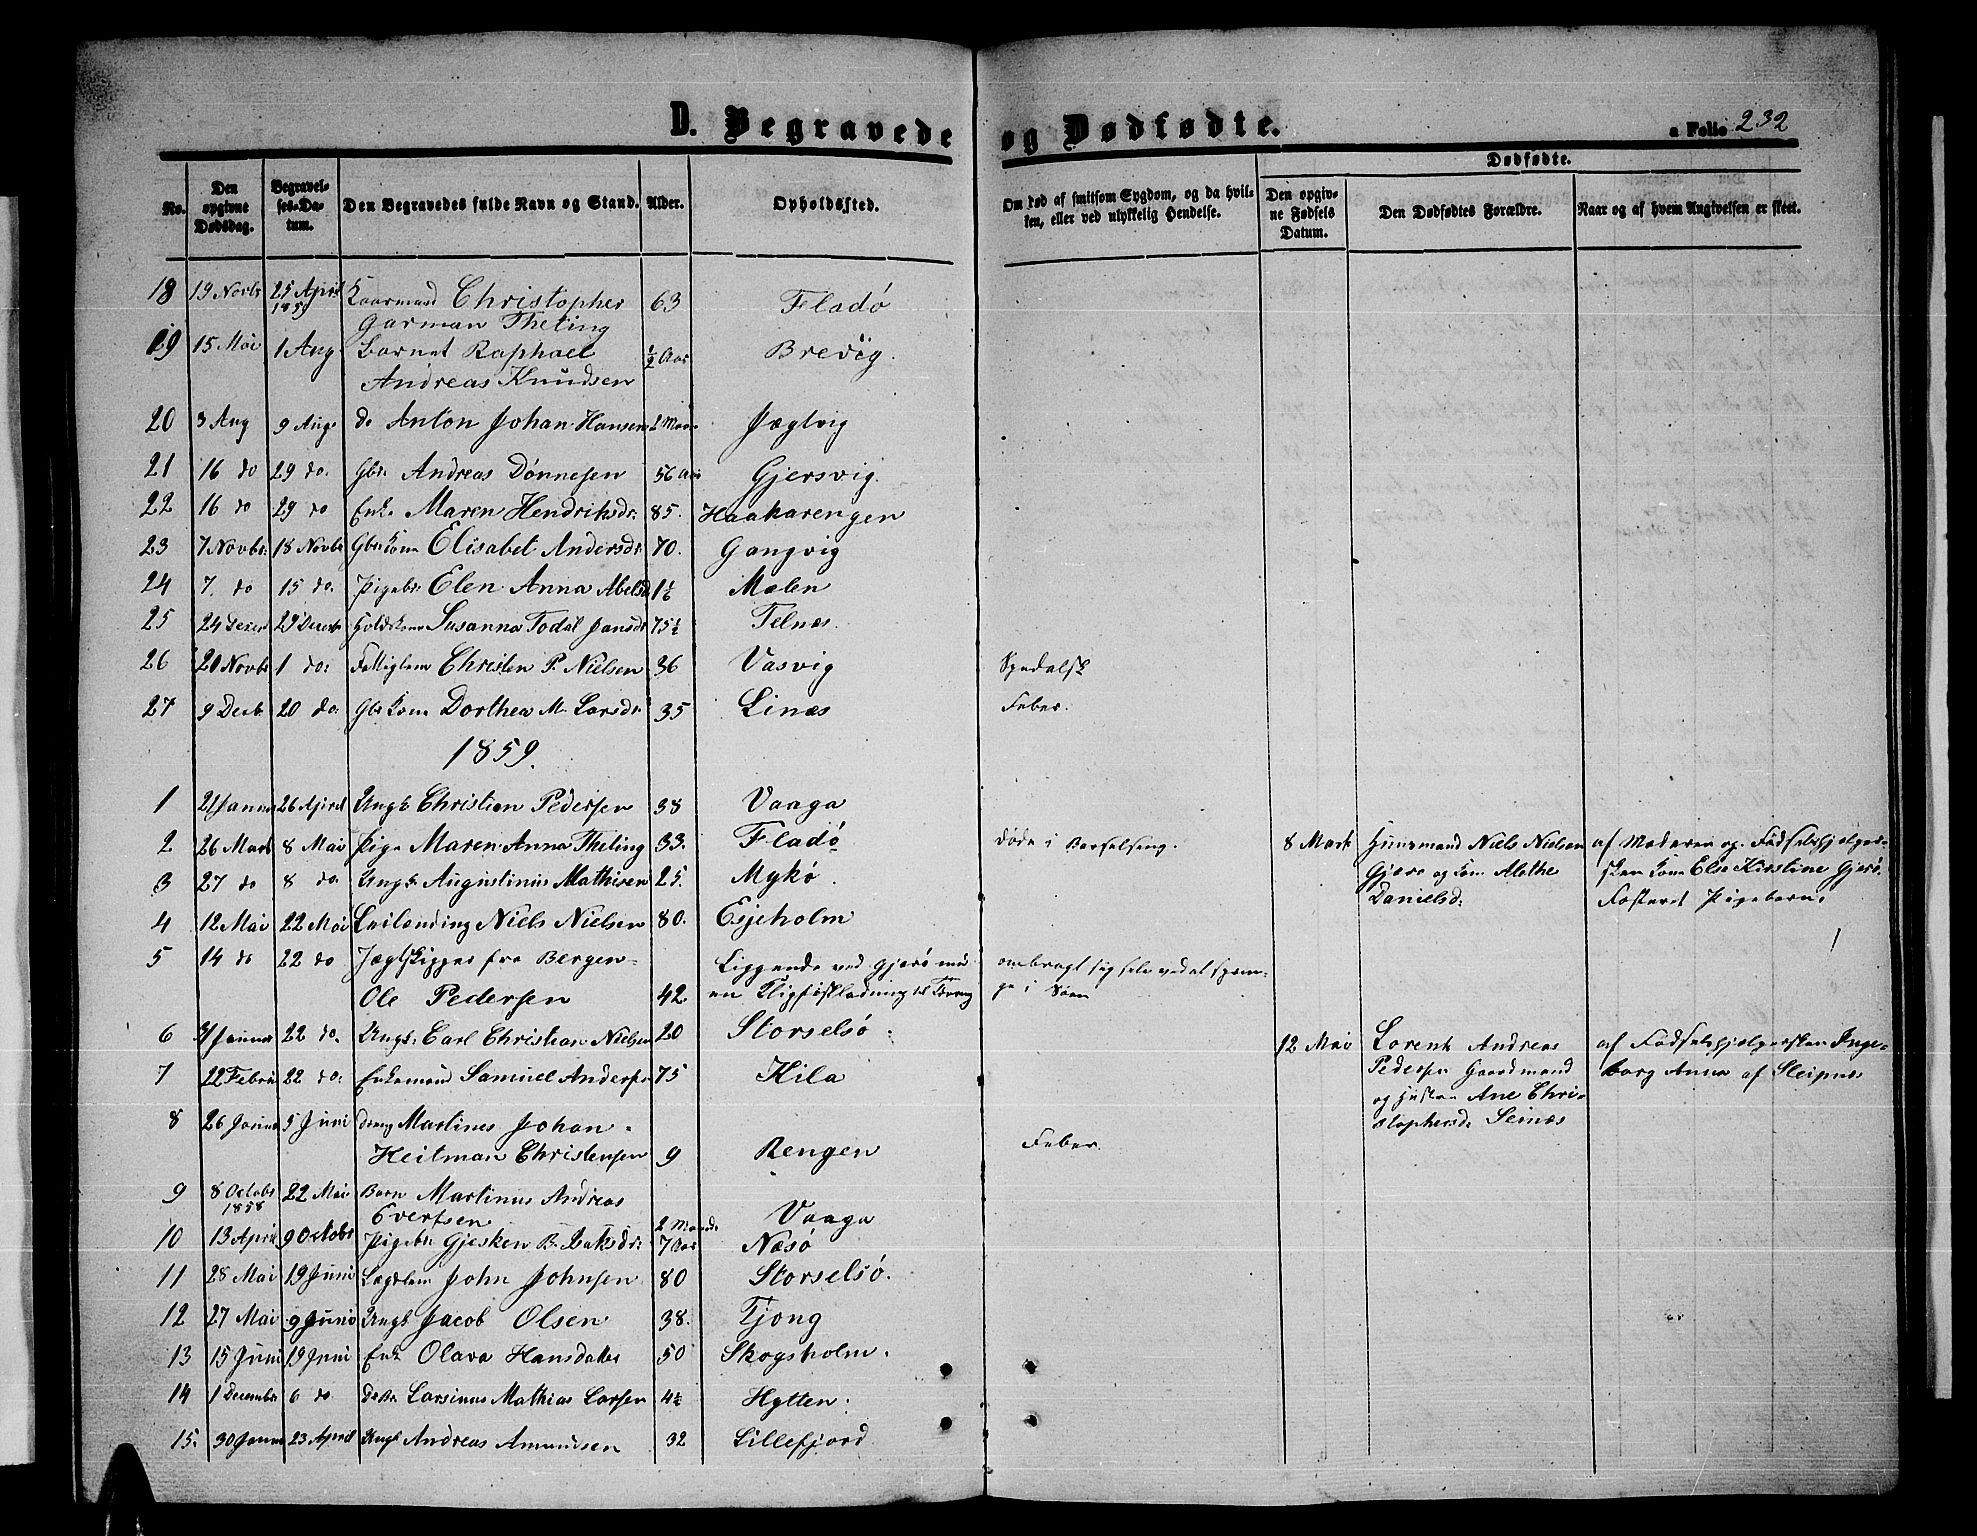 D. Begravede og Dødfødte.
a Folio 232
No. Den opgivne Dødsdag. Begravelses-Datum. Den Begravedes fulde Navn og Stand. Alder. Opholdssted. Om død af smitsom Sygdom, og da hvilken, eller ved ulykkelig Hendelse.
Dødfødte.
Den opgivne Fødsels Datum. Den Dødfødtes Forældre. Naar og af hvem Angivelsen er skeet.
18 19 Novbr 25 April 1859 Kaarmand Christopher 63 Fladø
Garman Theting
19 15 Mai 1 Aug Barnet Raphael ½ Aar Brevig.
Andreas Knudsen
20 3 Aug 9 Aug do Anton Johan Hansen 2 Maan Jægtvig
21 16 do 29 do. Gbr. Andreas Dønnesen 56 Aar Gjersvig.
22 16 do 29 do Enke Maren Hendriksdr. 85. Haakarengen
23 7 Novbr. 18 Novbr Gbr.kone Elisabet Andersdr 70. Gangvig
24 7. do 15 do. Pigebr. Elen Anna Abelsd 1½ Mælen
25 24 Decbr 29 Decbr Holdskone Susanna Todal Jansdr 75½ Telnæs.
26 20 Novbr 1 do: Fattiglem Christen P. Nielsen 36 Vasvig Spedalsk
27 9 Decbr 20 do. Gbr kone Dorthea M. Larsdr. 35 Linæs Feber.
1859.
1 21 Janua 26 April Ungk Christian Pedersen 38 Vaaga
2 26 Marts 8 Mai Pige Maren Anna Theting 33. Fladø døde i Barselseng. 8 Mark Huusmand Niels Nielsen af Moderen og Fødselshjelper-
3 27 do 8 do. Ungk. Augustinus Mathisen 25. Mykø. Gjerø og kone Alethe sken kone Else Kirstine Gjerø.
4 12 Mai 22 Mai Leilænding Niels Nielsen 80. Esjeholm Danielsd: Fosteret Pigebarn.
5 14 do 22 do Jægtskipper fra Bergen Liggende ved Gjerø med ombragt sig selv ved at sprin-
Ole Pedersen 42 en Kligfiskladning til ge i Søen
6 31 Janua 22 do. Ungk. Carl Christian Nielsen 20 Storselsø. 12 Mai Lorents Andreas af Fødselshjelpersken Inge-
7 22 Febru 22 do. Enkemand Samuel Andersen 75 Kila Pedersen Gaardmand borg Anna af Sleipnæs
8 26 Janua 5 Juni dreng Martines Johan og Hustru Ane Chri-
Heitman Christensen 9 Rengen Feber. stophersd: Seinæs
9 8 Octobr 1858 22 Mai Barn Martinus Andreas
Evertsen 2 Maand. Vaaga
10 13 April 9 Octobr Pigebr. Gjesken B. Isaksdr. 7 Aar Næsø
11 28 Mai 19 Juni Lægdslem John Johnsen 80 Storselsø.
12 27 Mai 9 Juni Ungk Jacob Olsen 38. Tjong
13 15 Juni 19 Juni Enke Olava Hansdatter 50 Skogsholm.
14 1 Decembr 6 do Larsinus Mathias Larsen 4½ Hytten.
15. 30 Janua 23 April Ungk Andreas Amundsen 32 Lillefjord